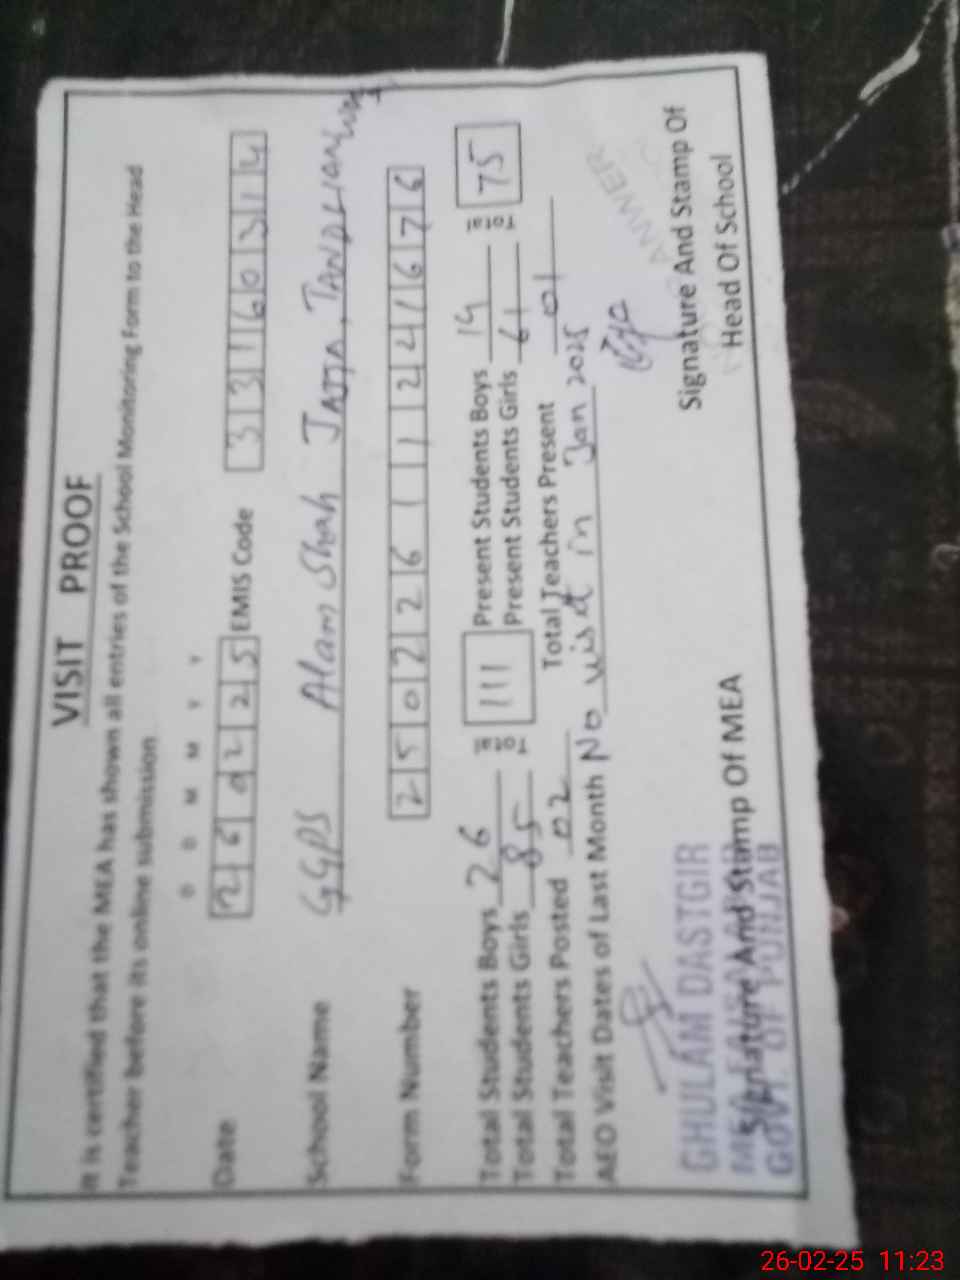 VISIT PROOF
It is certified that the MEA has shown all entries of the School Monitoring Form to the Head
Teacher before its online submission
D D M M Y Y
Date 260225 EMIS Code 33160314
School Name GGPS Alam Shah JATTA,
Form Number 250226112241676
Total Students Boys 26 Total 111 Present Students Boys 14 Total 75
Total Students Girls 85 Present Students Girls 61
Total Teachers Posted 02 Total Teachers Present 01
AEO Visit Dates of Last Month No visit in Jan 2025
GHULAM DASTGIR
GOVT. OF PUNJAB
Signature And Stamp Of MEA
ANWER
Signature And Stamp Of
Head Of School
26-02-25 11:23